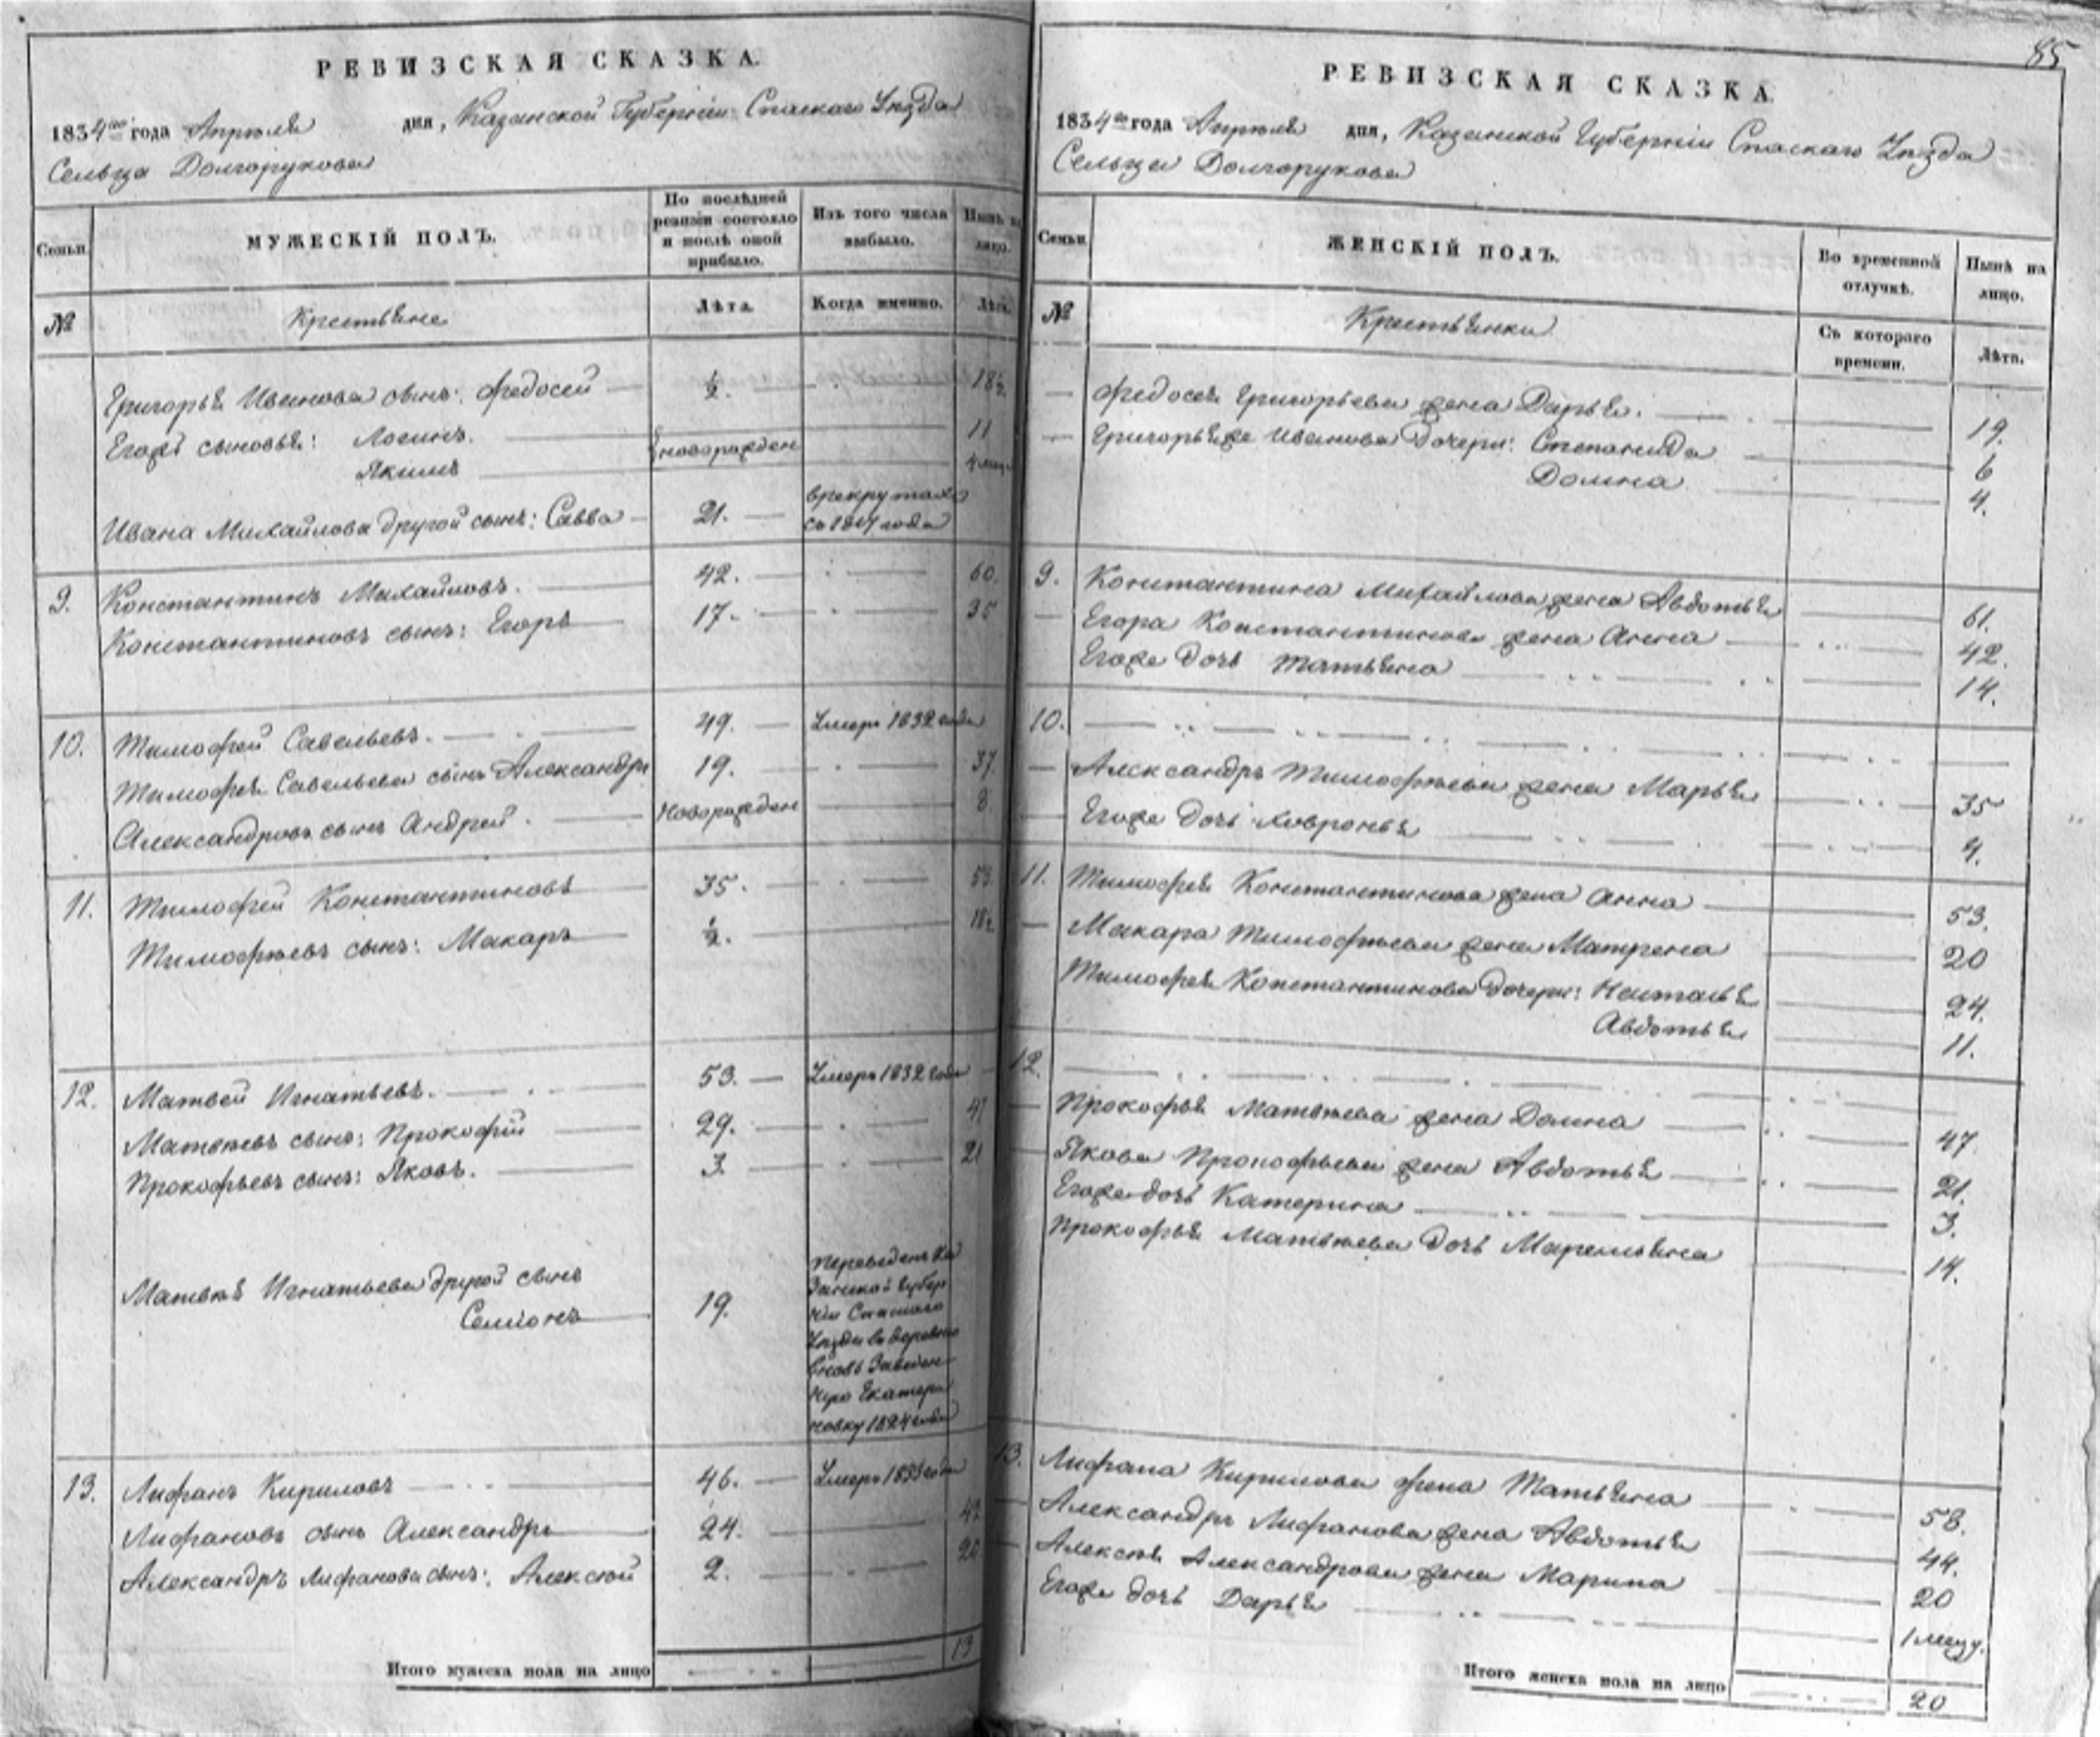 РЕВИЗСКАЯ СКАЗКА.
1834го года Апреля дня, Казанской Губернiи Спаскаго Уѣзда
Сельца Долгорукова
Семьи.
МУЖЕСКIЙ ПОЛЪ.
По послѣдней ревизiи состояло и послѣ оной прибыло.
Изъ того числа выбыло.
Нынѣ на лицо.
№
Крестьяне
Лѣта.
Когда именно.
Лѣта.
Григорья Иванова сынъ: Федосей ½. 18½
Егожъ сыновья: Логинъ. 11
Якимъ новорожден 4 мец.
Ивана Михайлова другой сынъ: Савва 21. в рекрутахъ
съ 18 года
9. Константинъ Михайловъ. 42. 60.
Константиновъ сынъ: Егоръ 17. 35
10. Тимофей Савельевъ. 49. Умеръ 1832 года
Тимофея Савельева сынъ Александръ 19. 37.
Александровъ сынъ Андрей. Новорожден 8.
11. Тимофей Константиновъ 35. 53
Тимофѣевъ сынъ: Макаръ ½. 18½
12. Матвей Игнатьевъ. 53. Умеръ 1832 года
Матвѣевъ сынъ: Прокофiй 29. 47
Прокофьевъ сынъ: Яковъ. 3. 21
Матвѣя Игнатьева другой сынъ
Семионъ 19.
Переведенъ Ка
занской Губер
нiи Спаскаго
Уѣзда в деревню
вновь Заведен
ную Екатери
новку 1824 года
13. Лифанъ Кириловъ 46. Умеръ 1833 года
Лифановъ сынъ Александръ 24. 42
Александръ Лифанова сынъ: Алексей 2. 20
Итого мужеска пола на лицо 13
85
РЕВИЗСКАЯ СКАЗКА.
1834го года Апреля дня, Казанской Губернiи Спаскаго Уѣзда
Сельца Долгорукова
Семьи.
ЖЕНСКIЙ ПОЛЪ.
Во временной отлучкѣ.
Нынѣ на лицо.
№
Крестьянки
Съ котораго времени.
Лѣта.
Федосея Григорьева жена Дарья. 19.
Григорья же Иванова дочери: Степанида 6
Домна 4.
9. Константина Михайлова жена Авдотья 61.
Егора Константинова жена Анна 42.
Егоже дочь Татьяна 14.
10.
Александръ Тимофѣева жена Марья 35
Егоже дочь Хавронья 4.
11. Тимофея Константинова жена Анна 53.
Макара Тимофѣева жена Матрена 20
Тимофея Константинова дочери: Настасья 24.
Авдотья 11.
12.
Прокофья Матвѣева жена Домна 47.
Якова Прокофьева жена Авдотья 21.
Егоже дочь Катерина 3.
Прокофья Матвѣева дочь Маремьяна 14.
13. Лифана Кирилова жена Татьяна 58.
Александръ Лифанова жена Авдотья 44.
Алексѣя Александрова жена Марина 20
Егоже дочь Дарья 1 месяц.
Итого женска пола на лицо 20